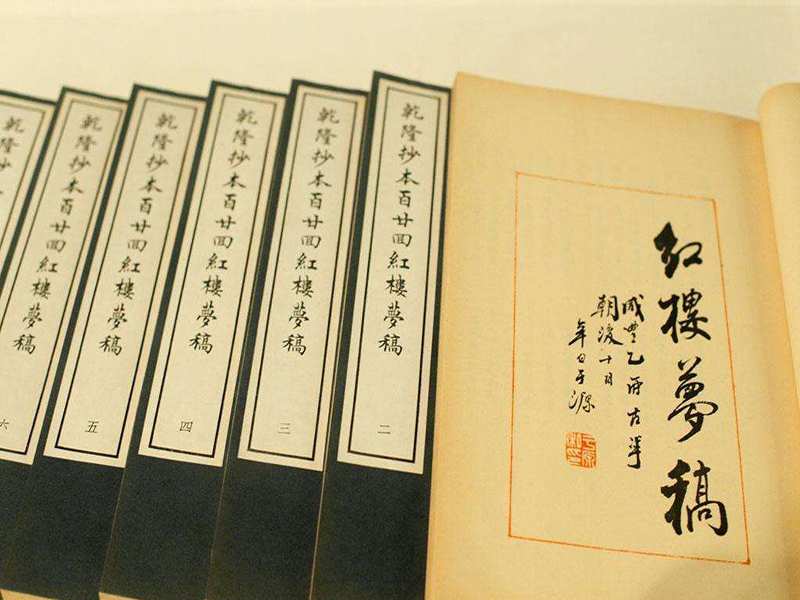 紅樓夢稿
咸豐乙卯古華
朝後十日
辛白于源
乾隆抄本百廿回紅樓夢稿
二
乾隆抄本百廿回紅樓夢稿
三
乾隆抄本百廿回紅樓夢稿
四
乾隆抄本百廿回紅樓夢稿
五
乾隆抄
夢稿
六